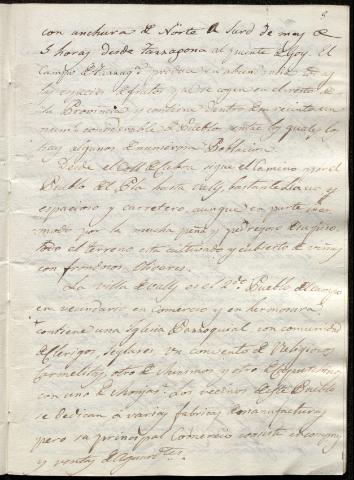 con anchura de Norte a Surd de mas de
5 horas desde Tarragona al puente de Goy. El
Campo de Tarrag.ª produce en abundancia todas
las especies de frutos que se cogen en el resto de
la Provincia y contiene dentro su recinto un
numero considerable de Pueblos entre los quales los
hay algunos de numerosa Poblacion.
Desde el Coll de Cabra sigue el Camino por el
Pueblo del Pla hasta Valls, bastante llano y
espacioso y carretero, aunque en parte inco-
modo por la mucha peña y pedrejon
todo el terreno està cultivado y cubierto de viñas
con frondosos Olivares.
La villa de Valls es el 2.do Pueblo del campo
en vecindario en Comercio y en hermosura
contiene una Iglesia Parroquial con comunidad
de Clerigos seglares. Un convento de Religiosos
Carmelitas, otro de Minimos y otro de Capuchinos
con uno de Monjas. Los vecinos de este Pueblo
se dedican à varias fabricas de manufacturas
pero su principal Comercio consiste en compras
y ventas de Aguard.tes